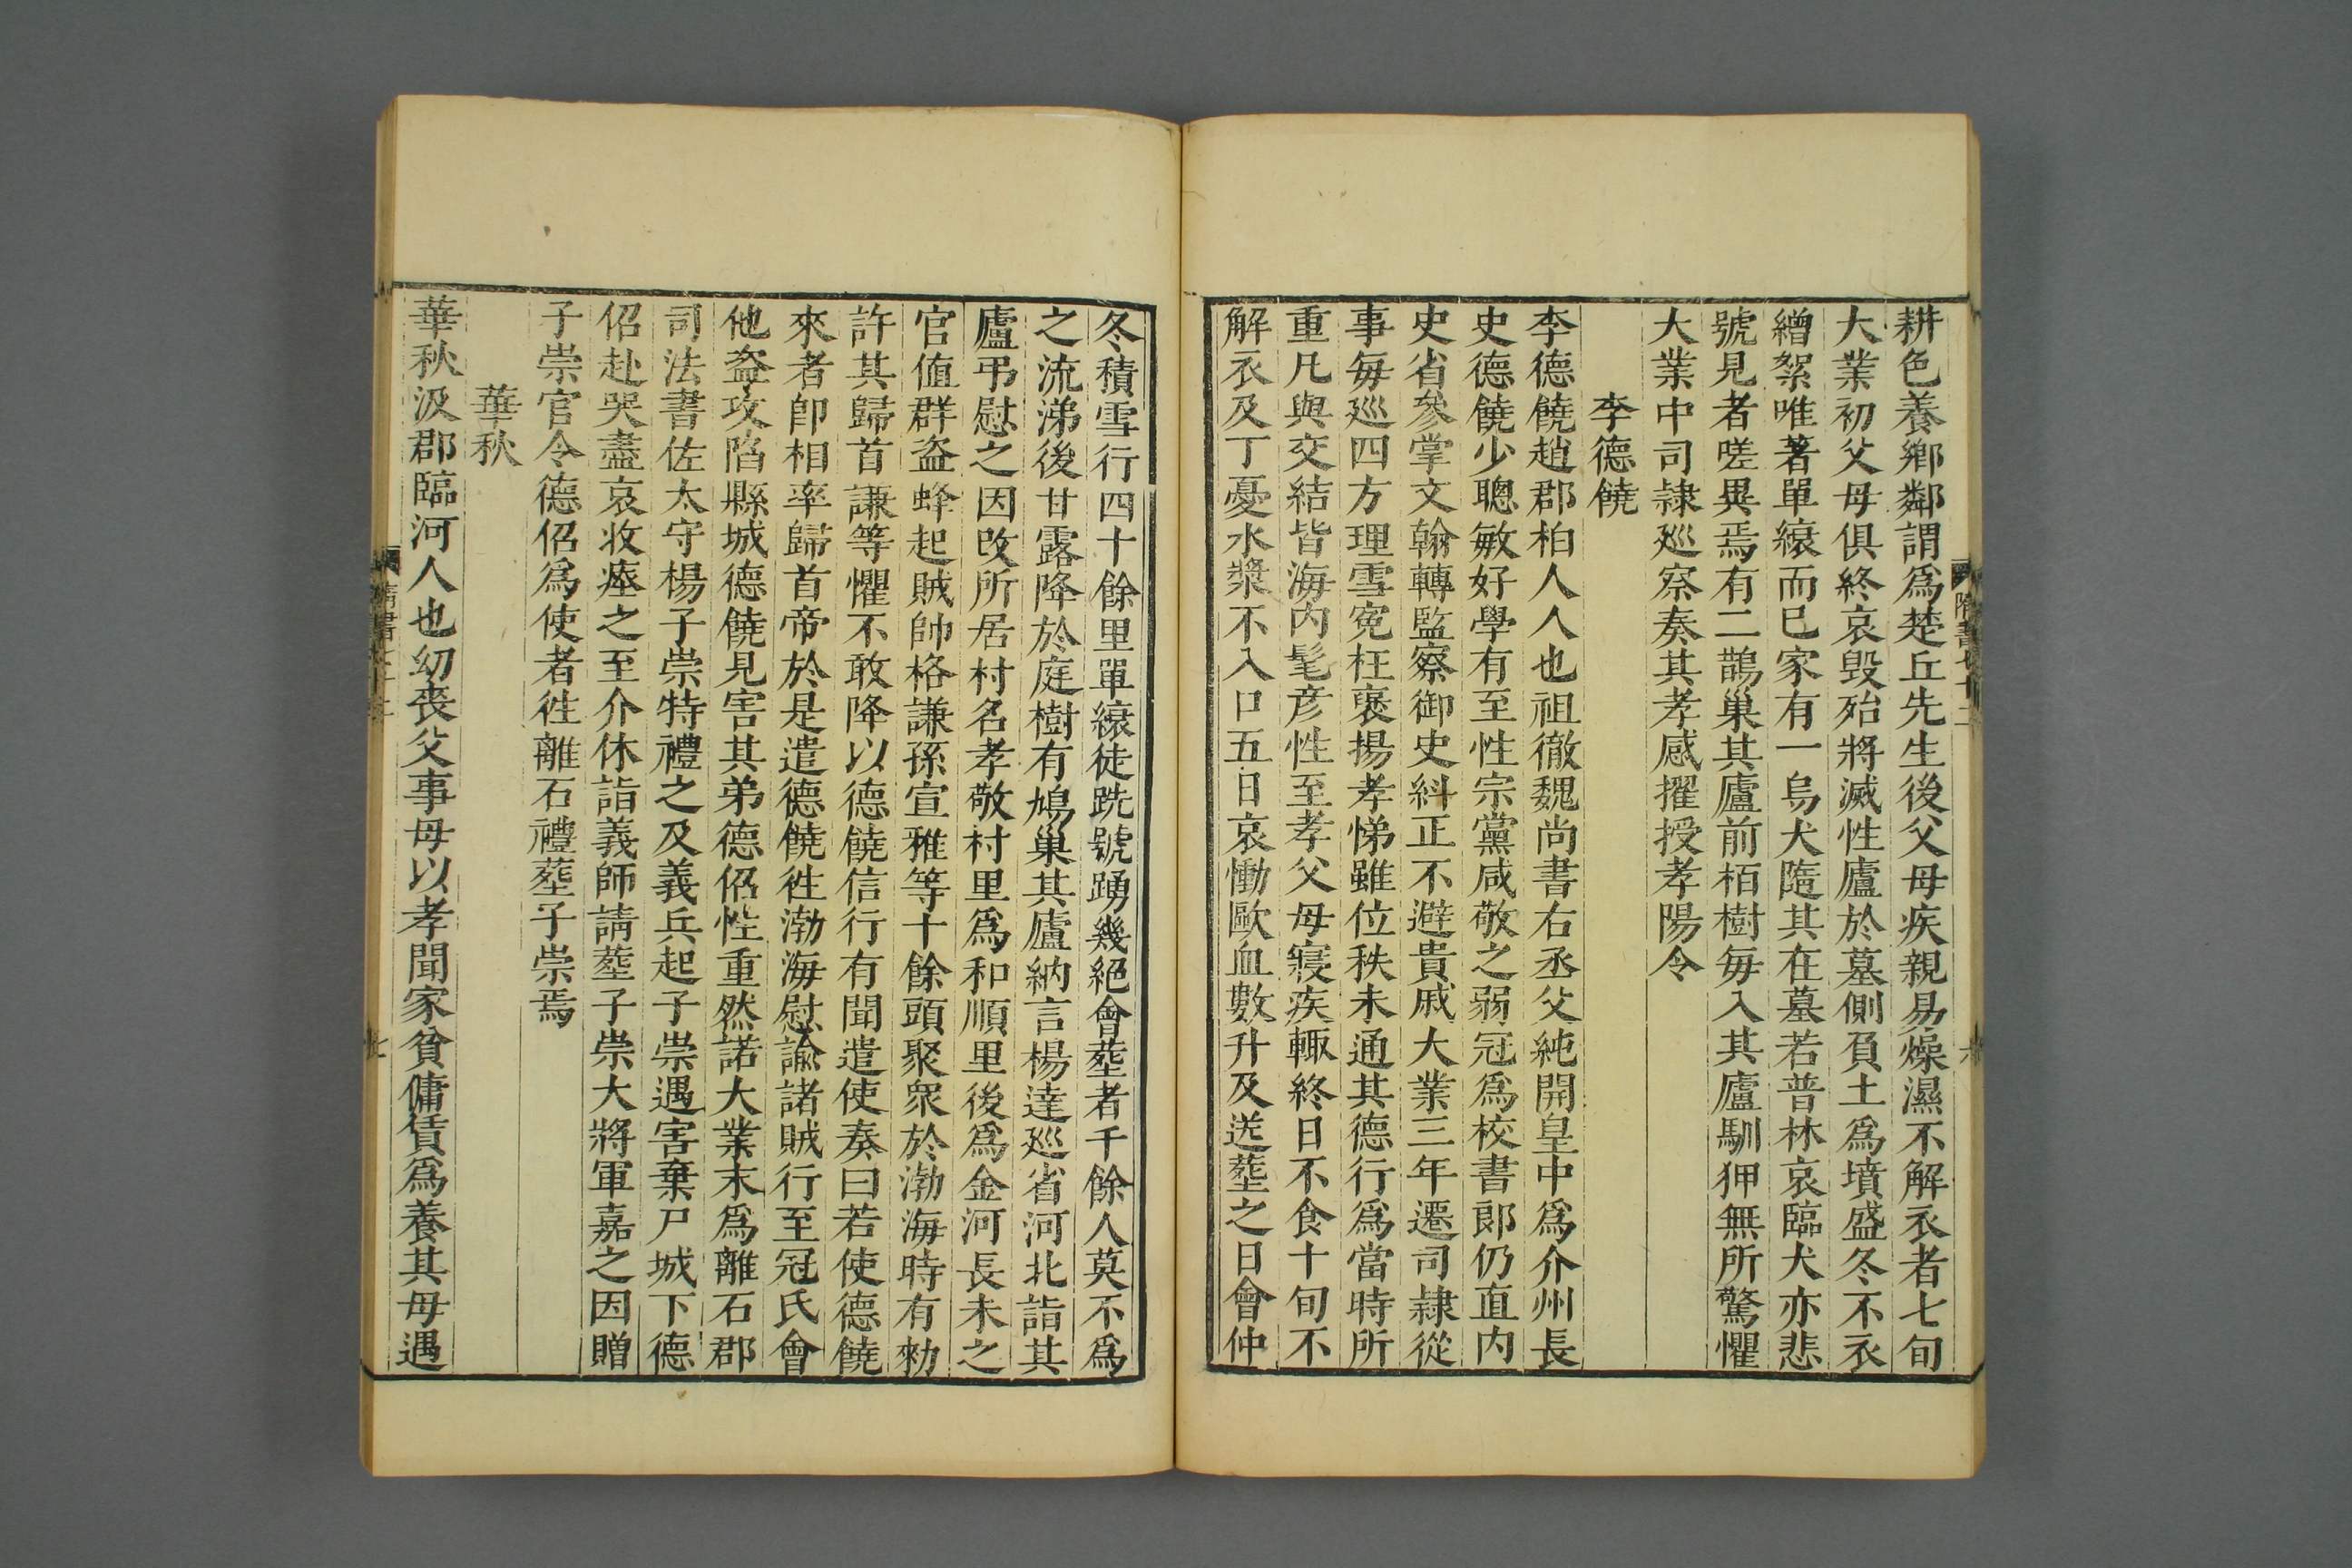 耕色養鄉鄰謂爲楚丘先生後父母疾親易燥濕不解衣者七旬
大業初父母俱終哀毁殆將滅性廬於墓側負土爲墳盛冬不衣
繒絮唯著單縗而已家有一烏犬隨其在墓若普林哀臨犬亦悲
號見者嗟異焉有二鵲巢其廬前栢樹每入其廬馴狎無所驚懼
大業中司隷廵察奏其孝感擢授孝陽令
李德饒
李德饒趙郡柏人人也祖徹魏尚書右丞父純開皇中爲介州長
史德饒少聰敏好學有至性宗黨咸敬之弱冠爲校書郎仍直内
史省參掌文翰轉監察御史糾正不避貴戚大業三年遷司隷從
事每廵四方理雪寃枉褒揚孝悌雖位秩未通其德行爲當時所
重凡與交結皆海内髦彦性至孝父母寢疾輙終日不食十旬不
解衣及丁憂水漿不入口五日哀慟歐血數升及送塟之日會仲
冬積雪行四十餘里單縗徒跣號踴幾絕會塟者千餘人莫不爲
之流涕後甘露降於庭樹有鳩巢其廬納言楊達廵省河北詣其
廬弔慰之因改所居村名孝敬村里爲和順里後爲金河長未之
官值群盗蜂起賊帥格謙孫宣雅等十餘頭聚衆於渤海時有勑
許其歸首謙等懼不敢降以德饒信行有聞遣使奏曰若使德饒
來者卽相率歸首帝於是遣德饒徃渤海慰諭諸賊行至冠氏會
他盗攻陷縣城德饒見害其弟德侶性重然諾大業末爲離石郡
司法書佐太守楊子崇特禮之及義兵起子崇遇害棄尸城下德
侶赴哭盡哀收瘞之至介休詣義師請塟子崇大將軍嘉之因贈
子崇官令德侶爲使者徃離石禮塟子崇焉
華秋
華秋汲郡臨河人也幼喪父事母以孝聞家貧傭賃爲養其母遇
隋書七十二
六